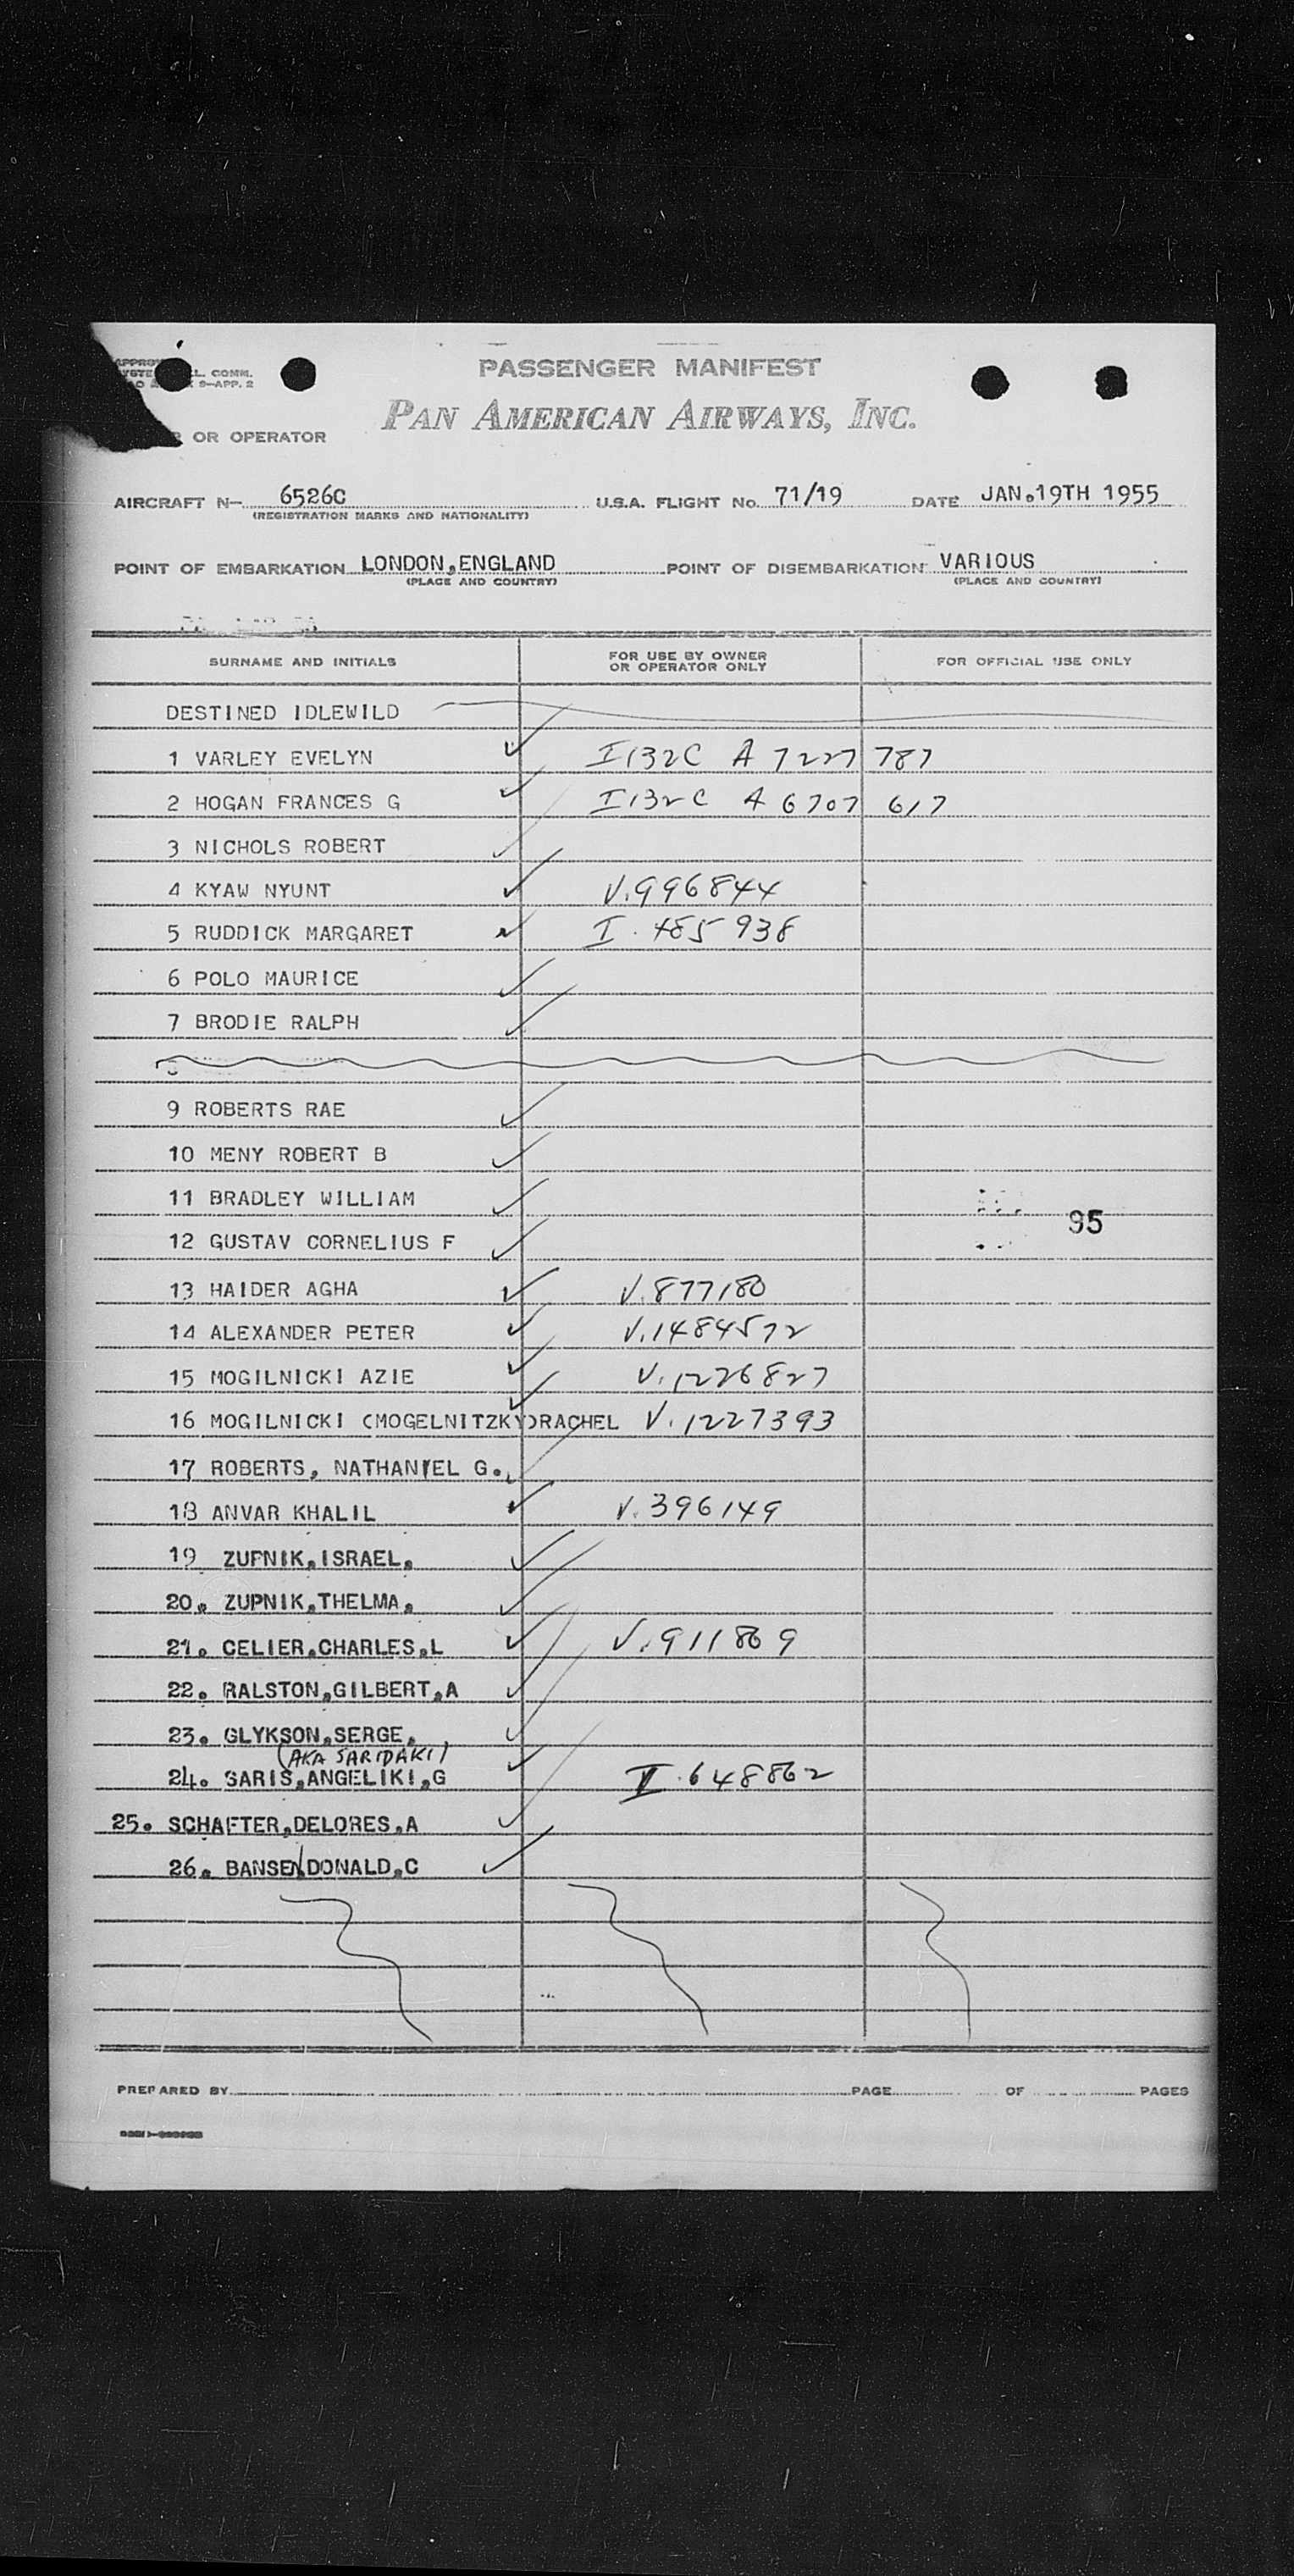 PASSENGER MANIFEST
L. COMM.
9—APP. 2
PAN AMERICAN AIRWAYS, INC.
OR OPERATOR
AIRCRAFT N— 6526C U.S.A. FLIGHT No. 71/19 DATE JAN.19TH 1955
(REGISTRATION MARKS AND NATIONALITY)
POINT OF EMBARKATION LONDON,ENGLAND POINT OF DISEMBARKATION VARIOUS
(PLACE AND COUNTRY) (PLACE AND COUNTRY)
SURNAME AND INITIALS FOR USE BY OWNER OR OPERATOR ONLY FOR OFFICIAL USE ONLY
DESTINED IDLEWILD
1 VARLEY EVELYN I132C A 7227 787
2 HOGAN FRANCES G I132C A 6707 617
3 NICHOLS ROBERT
4 KYAW NYUNT V.996844
5 RUDDICK MARGARET I. 485938
6 POLO MAURICE
7 BRODIE RALPH
9 ROBERTS RAE
10 MENY ROBERT B
11 BRADLEY WILLIAM
95
12 GUSTAV CORNELIUS F
13 HAIDER AGHA V.877180
14 ALEXANDER PETER V.1484572
15 MOGILNICKI AZIE V.1226827
16 MOGILNICKI (MOGELNITZKY)RACHEL V.1227393
17 ROBERTS, NATHANIEL G.
18 ANVAR KHALIL V.396149
19 ZUPNIK,ISRAEL.
20. ZUPNIK,THELMA.
21. CELIER,CHARLES,L V.911869
22. RALSTON,GILBERT,A
23. GLYKSON,SERGE.
(AKA SARIDAKI)
24. SARIS,ANGELIKI,G I.648862
25. SCHAFTER,DELORES,A
26. BANSEN,DONALD,C
PREPARED BY PAGE OF PAGES